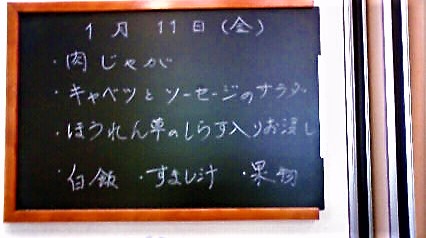 1月11日(金)
・肉じゃが
・キャベツとソーセージのサラダ
・ほうれん草のしらす入りお浸し
・白飯 ・すまし汁 ・果物